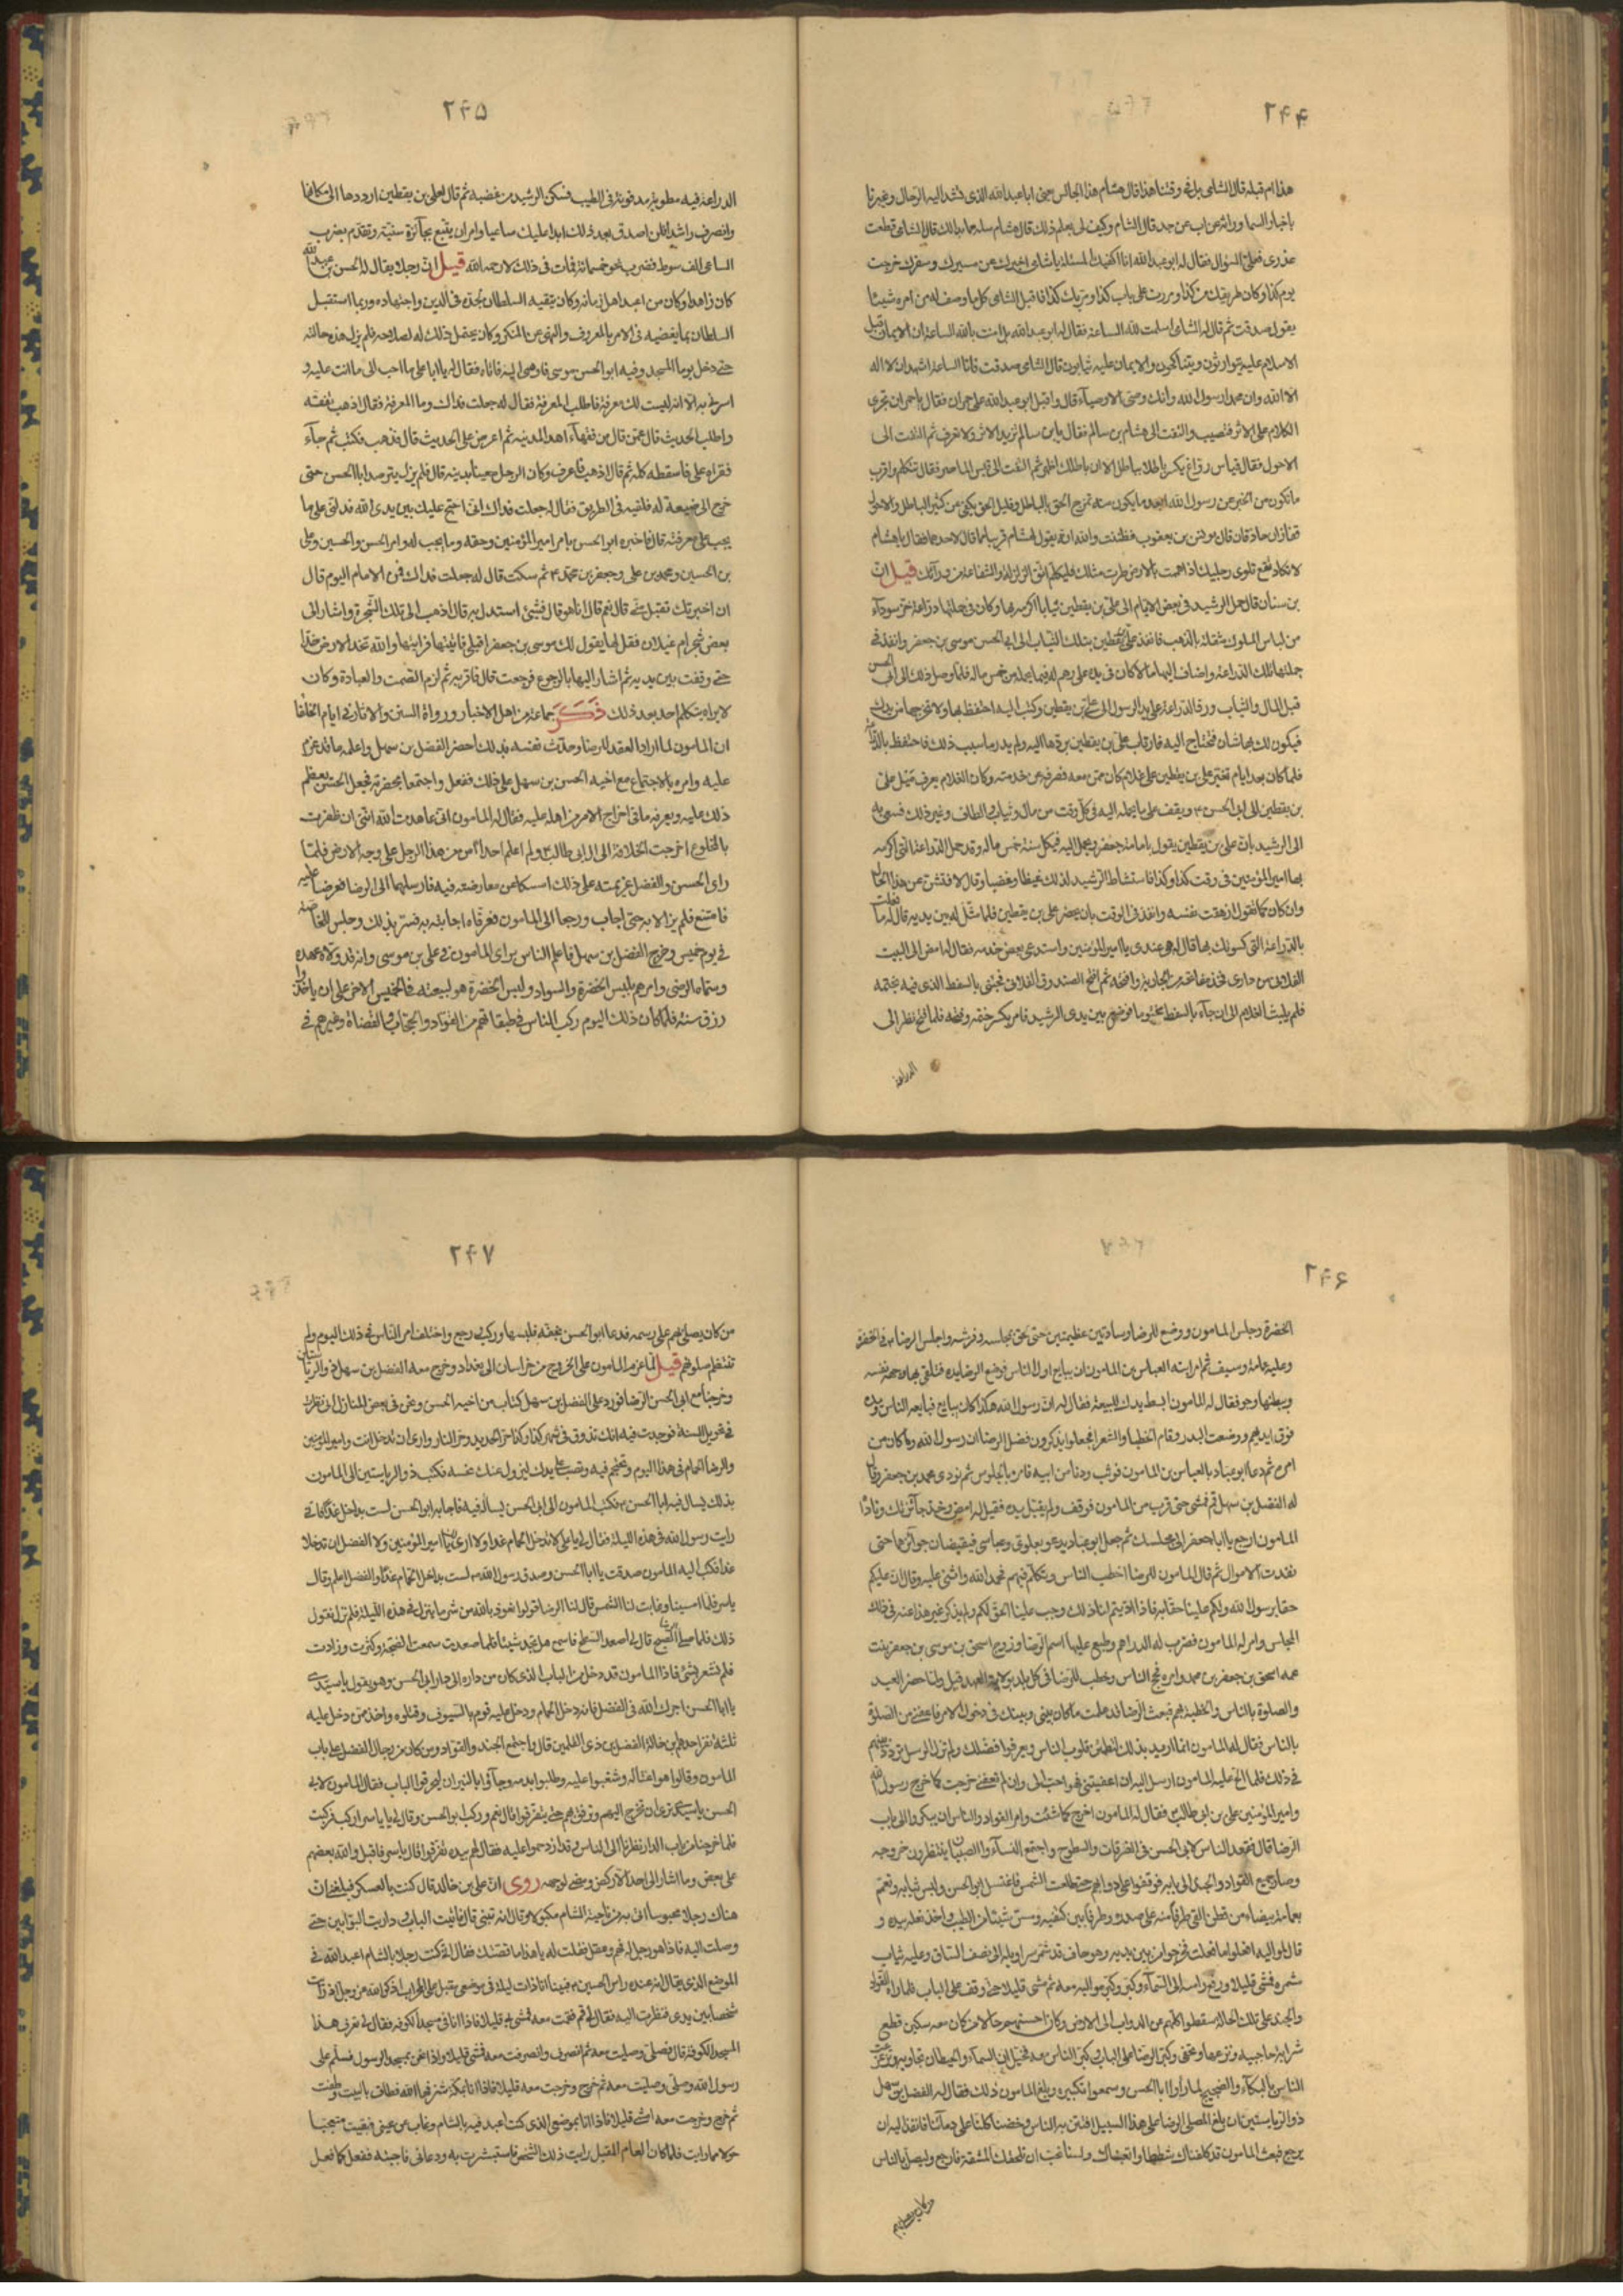 ۲۴۴
هذا ام قبله قال الشامی بل فی وقتنا هذا قال هشام هذا الجالس یعنی ابا عبد الله الذی تشد الیه الرحال و یخبرنا
باخبار السماء وراثة عن اب عن جد قال الشامی وکیف لی بعلم ذلک قال هشام سله عما بدا لک قال الشامی قطعت
عذری فعلی السؤال فقال له ابو عبد الله انا اکفیک المسئلة یا شامی اخبرک عن مسیرک و سفرک خرجت
یوم کذا وکان طریقک من کذا ومررت علی کذا ومر بک کذا فاقبل الشامی کلما وصف له من امره شیئا
یقول صدقت ثم قال له الشامی اسلمت لله الساعة فقال له ابو عبد الله بل امنت بالله الساعة ان الایمان قبل
الاسلام علیه یتوارثون ویتناکحون والایمان علیه یثابون قال الشامی صدقت فانا الساعة اشهد ان لا اله
الا الله وان محمدا رسول الله وانک وصی الاوصیاء قال واقبل ابو عبد الله علی حمران فقال یا حمران تجری
الکلام علی الاثر فتصیب والتفت الی هشام بن سالم فقال یابن سالم ترید الاثر ولا تعرف ثم التفت الی
الاحول فقال قیاس رواغ تکسر باطلا بباطل الا ان باطلک اظهر ثم التفت الی قیس الماصر فقال تتکلم واقرب
ما تکون من الخبر عن رسول الله ابعد ما یکون منه تمزج الحق بالباطل وقلیل الحق یکفی من کثیر الباطل انت والاحول
قفازان حاذقان قال یونس بن یعقوب فظننت والله انه یقول لهشام قریبا مما قال لاحدهما فقال یا هشام
لا تکاد تقع تلوی رجلیک اذا هممت بالارض طرت مثلک فلیکلم الناس اتق الزلة والشفاعة من ورائک قیل ان
بن سنان قال حمل الرشید فی بعض الایام الی علی بن یقطین ثیابا اکرمه بها وکان فی جملتها دراعة خز سوداء
من لباس الملوک مثقلة بالذهب فانفذ علی بن یقطین بتلک الثیاب الی ابی الحسن موسی بن جعفر وانفذ فی
جملتها تلک الدراعة واضاف الیها مالا کان علی رسم له فیما یحمله من خمس ماله فلما وصل ذلک الی ابی الحسن
قبل المال والثیاب ورد الدراعة علی ید الرسول الی علی بن یقطین وکتب الیه احتفظ بها ولا تخرجها من یدک
فیکون لک بها شان تحتاج الیه فارتاب علی بن یقطین بردها الیه ولم یدر ما سبب ذلک فاحتفظ بالدراعة
فلما کان بعد ایام تغیر علی بن یقطین علی غلام کان ممن معه فصرفه عن خدمته وکان الغلام یعرف میل علی
بن یقطین الی ابی الحسن ویقف علی ما یحمله الیه فی کل وقت من مال وثیاب والطاف وغیر ذلک فسعی به
الی الرشید بان علی بن یقطین یقول بامامة جعفر ویحمل الیه فی کل سنة خمس ماله وقد حمل الدراعة التی اکرمه
بها امیر المؤمنین فی وقت کذا وکذا فاستشاط الرشید لذلک غیظا وغضبا وقال لاکشفن عن هذا الحال
وان کان کما تقول ازهقت نفسه وانفذ فی الوقت بان یحضر علی بن یقطین فلما مثل له بین یدیه قال له ما فعلت
بالدراعة التی کسوتک بها قال له هی عندی یا امیر المؤمنین واستدعی بعض خدمه فقال له امض الی البیت
الفلانی من داری فخذ مفتاحه من الجاریة وافتحه ثم افتح الصندوق الفلانی فجئنی بالسفط الذی فیه بختمه
فلم یلبث الغلام الی ان جاء بالسفط مختوما فوضع بین یدی الرشید فامر بکسر ختمه وفضه فلما فتح نظر الی
الدراعة
۲۴۵
الدراعة فیه مطویة مدفونة فی الطیب فسکن الرشید من غضبه ثم قال لعلی بن یقطین ارددها الی مکانها
وانصرف راشدا فلن اصدق بعد ذلک ابدا علیک ساعیا وامر ان یتبع بجائزة سنیة وتقدم بضرب
الساعی الف سوط فضرب نحو خمسمائة فمات فی ذلک لا رحمه الله قیل ان رجلا یقال له الحسن بن عبد الله
کان زاهدا وکان من اعبد اهل زمانه وکان یتقیه السلطان لجده فی الدین واجتهاده وربما استقبل
السلطان بما یغضبه فی الامر بالمعروف والنهی عن المنکر وکان یحتمل ذلک له لصلاحه فلم یزل هذه حالته
حتی دخل یوما المسجد وفیه ابو الحسن موسی فاومی الیه فاتاه فقال له یا ابا علی ما احب الی ما انت علیه و
اسرنی به الا انه لیست لک معرفة فاطلب المعرفة فقال له جعلت فداک وما المعرفة فقال اذهب تفقه
واطلب الحدیث قال عمن قال من فقهاء اهل المدینة ثم اعرض علی الحدیث قال فذهب فکتب ثم جاء
فقراه علی فاسقطه کله ثم قال اذهب فاعرف وکان الرجل معینا بدینه قال فلم یزل یترصد ابا الحسن حتی
خرج الی ضیعة له فلقیه فی الطریق فقال له جعلت فداک انی احتج علیک بین یدی الله فدلنی علی ما
یجب علی معرفته قال فاخبره ابو الحسن بامر امیر المؤمنین وحقه وما یجب له وامر الحسن والحسین وعلی
بن الحسین ومحمد بن علی وجعفر بن محمد ثم سکت قال له جعلت فداک فمن الامام الیوم قال
ان اخبرتک تقبل منی قال نعم قال انا هو قال فشیء استدل به قال اذهب الی تلک الشجرة واشار الی
بعض شجر ام غیلان فقل لها یقول لک موسی بن جعفر اقبلی فاتیتها فرایتها والله تخد الارض خدا
حتی وقفت بین یدیه ثم اشار الیها بالرجوع فرجعت قال فاقر به ثم لزم الصمت والعبادة وکان
لا یراه یتکلم احد بعد ذلک ذکر جماعة من اهل الاخبار ورواة السیر والاثار فی ایام الخلفا
ان المامون لما اراد العقد للرضا وحدث نفسه بذلک احضر الفضل بن سهل واعلمه ما قد عزم
علیه وامره بالاجتماع مع اخیه الحسن بن سهل علی ذلک ففعل واجتمعا بحضرته فجعل الحسن یعظم
ذلک علیه ویعرفه ما فی اخراج الامر من اهله علیه فقال له المامون انی عاهدت الله اننی ان ظفرت
بالمخلوع اخرجت الخلافة الی ال ابی طالب ولم اعلم احدا افضل من هذا الرجل علی وجه الارض فلما
رای الحسن والفضل عزیمته علی ذلک امسکا عن معارضته فیه فارسلهما الی الرضا فعرضا علیه
فامتنع فلم یزالا به حتی اجاب ورجعا الی المامون فعرفاه اجابته به فسر بذلک وجلس للخاصة
فی یوم خمیس وخرج الفضل بن سهل فاعلم الناس برای المامون فی علی بن موسی وانه قد ولاه عهده
وسماه الرضی وامرهم بلبس الخضرة والسواد ولبس الخضرة هو لبیعته فی الخمیس الاخر علی ان یاخذوا
رزق سنة فلما کان ذلک الیوم رکب الناس علی طبقاتهم من القواد والحجاب والقضاة وغیرهم فی
۲۴۶
الخضرة وجلس المامون ووضع للرضا وسادتین عظیمتین حتی لحق بمجلسه وفرشه واجلس الرضا فی الخضرة
وعلیه عمامة وسیف ثم امر ابنه العباس بن المامون ان یبایع اول الناس فرفع الرضا یده فتلقی بها وجه نفسه
وببطنها وجوههم فقال له المامون ابسط یدک للبیعة فقال له ان رسول الله هکذا کان یبایع فبایعه الناس ویده
فوق ایدیهم ووضعت البدر وقام الخطباء والشعراء فجعلوا یذکرون فضل الرضا ان رسول الله وما کان من
امره ثم دعا ابو عباد بالعباس بن المامون فوثب ودنا من ابیه فامره بالجلوس ثم نودی محمد بن جعفر وقال
له الفضل بن سهل قم فمشی حتی قرب من المامون فوقف ولم یقبل یده فقیل له امض وخذ جائزتک وناداه
المامون ارجع یا ابا جعفر الی مجلسک ثم جعل ابو عباد یدعو بعلوی وعباسی فیقبضان جوائزهما حتی
نفدت الاموال ثم قال المامون للرضا اخطب الناس وتکلم فیهم فحمد الله واثنی علیه وقال ان علیکم
حقا برسول الله ولکم علینا حقا به فاذا ادیتم لنا ذلک وجب علینا الحق لکم ولم یذکر غیر هذا عنه فی ذلک
المجلس وامر له المامون فضرب له الدراهم وطبع علیها اسم الرضا وزوج اسحق بن موسی بن جعفر بنت
عمه اسحق بن جعفر بن محمد وامره فحج الناس وخطب للرضا فی کل بلد بولایة العهد قیل ولما حضر العید
والصلوة بالناس والخطبة بهم فبعث الرضا قد علمت ما کان بینی وبینک فی دخول الامر فاعفنی من الصلوة
بالناس فقال له المامون انما ارید بذلک لتطمئن قلوب الناس ویعرفوا فضلک ولم تزل الرسل تردد بینهم
فی ذلک فلما الح علیه المامون ارسل الیه ان اعفیتنی فهو احب الی وان لم تعفنی خرجت کما خرج رسول الله
وامیر المؤمنین علی بن ابی طالب فقال له المامون اخرج کما شئت وامر القواد والناس ان یبکروا الی باب
الرضا قال فقعد الناس لابی الحسن فی الطرقات والسطوح واجتمع النساء والصبیان ینتظرون خروجه
وصار جمیع القواد والجند الی بابه فوقفوا علی دوابهم حتی طلعت الشمس فاغتسل ابو الحسن ولبس ثیابه وتعمم
بعمامة بیضاء من قطن القی طرفا منه علی صدره وطرفا بین کتفیه ومس شیئا من الطیب واخذ بیده و
قال لموالیه افعلوا ما فعلت فخرجوا من بین یدیه وهو حاف قد شمر سراویله الی نصف الساق وعلیه ثیاب
مشمرة فمشی قلیلا ورفع راسه الی السماء وکبر وکبر موالیه معه ثم مشی قلیلا حتی وقف علی الباب فلما راه القواد
والجند علی تلک الحالة سقطوا کلهم عن الدواب الی الارض وکان احسنهم حالا من کان معه سکین قطع
شرابة حاجبیه ونزعها وتحفی وکبر الرضا علی الباب وکبر الناس معه فخیل ان السماء والحیطان تجاوبه
الناس بالبکاء والضجیج لما راوا ابا الحسن وسمعوا تکبیره وبلغ المامون ذلک فقال له الفضل بن سهل
ذو الریاستین ان بلغ المصلی الرضا علی هذا السبیل افتتن به الناس وخفنا کلنا علی دمائنا فانفذ الیه ان
یرجع فبعث المامون قد کلفناک شططا واتعبناک ولسنا نحب ان تلحقک المشقة فارجع ولیصل بالناس
من کان یصلی بهم
۲۴۷
من کان یصلی بهم علی رسمه فدعا ابو الحسن بخفه فلبسها ورکب ورجع واختلف امر الناس فی ذلک الیوم ولم
تنتظم صلوتهم قیل لما عزم المامون علی الخروج من خراسان الی بغداد وخرج معه الفضل بن سهل ذو الریاستین
وخرجنا مع ابی الحسن الرضا فورد علی الفضل بن سهل کتاب من اخیه الحسن ونحن فی بعض المنازل انی نظرت
فی تحویل السنة فوجدت فیه انک تذوق فی شهر کذا وکذا حر الحدید وحر النار واری ان تدخل انت وامیر المؤمنین
والرضا الحمام فی هذا الیوم وتحتجم فیه وتصب علی یدک لیزول عنک نحسه فکتب ذو الریاستین الی المامون
بذلک یسال فیه ابا الحسن فکتب المامون الی ابی الحسن یساله فیه فاجابه ابو الحسن لست بداخل غدا فانی
رایت رسول الله فی هذه اللیلة فقال لی یا علی لا تدخل الحمام غدا ولا اری لک یا امیر المؤمنین ولا الفضل ان تدخلا
غدا فکتب الیه المامون صدقت یا ابا الحسن وصدق رسول الله لست بداخل الحمام غدا والفضل اعلم وقال
یاسر فلما امسینا وغابت لنا الشمس قال لنا الرضا قولوا نعوذ بالله من شر ما ینزل فی هذه اللیلة فلم نزل نقول
ذلک فلما صلی الصبح قال لی اصعد السطح فاسمع هل تجد شیئا فلما صعدت سمعت الضجة وکثرت وزادت
فلم نشعر بشیء فاذا المامون قد دخل من الباب الذی کان من داره الی دار ابی الحسن وهو یقول یا سیدی
یا ابا الحسن اجرک الله فی الفضل فانه دخل الحمام ودخل علیه قوم بالسیوف وقتلوه واخذ ممن دخل علیه
ثلثة نفر احدهم بن خالة الفضل بن ذی القلمین قال واجتمع الجند والقواد ومن کان من رجال الفضل علی باب
المامون وقالوا هو اغتاله وشغبوا علیه وطلبوا بدمه وجاؤا بالنیران لیحرقوا الباب فقال المامون لابی
الحسن یا سیدی نری ان تخرج الیهم وترفق بهم حتی یتفرقوا قال نعم ورکب ابو الحسن وقال لی یا یاسر ارکب فرکبت
فلما خرجنا من باب الدار نظرنا الی الناس وقد ازدحموا علیه فقال لهم بیده تفرقوا قال یاسر فاقبل والله بعضهم
علی بعض وما اشار الی احد الا رکض ومضی لوجهه روی ان علی بن خالد قال کنت بالعسکر فبلغنی ان
هناک رجلا محبوسا اتی به من ناحیة الشام مکبولا وقال انه تنبی قال فاتیت الباب وداریت البوابین حتی
وصلت الیه فاذا هو رجل له فهم وعقل فقلت له یا هذا ما قصتک فقال انی کنت رجلا بالشام اعبد الله فی
الموضع الذی یقال انه عنده راس الحسین فبینا انا ذات لیلة فی موضعی مقبل علی المحراب اذکر الله عز وجل اذ رایت
شخصا بین یدی فنظرت الیه فقال لی قم فقمت معه فمشی بی قلیلا فاذا انا فی مسجد الکوفة فقال لی تعرف هذا
المسجد الکوفة قال فصلی وصلیت معه ثم انصرف وانصرفت معه فمشی قلیلا واذا نحن بمسجد الرسول فسلم علی
رسول الله وصلی وصلیت معه ثم خرج وخرجت معه قلیلا فاذا انا بمکة شرفها الله فطاف بالبیت وطفت
ثم خرج وخرجت معه امشی قلیلا فاذا انا بموضعی الذی کنت اعبد فیه بالشام وغاب عن عینی فبقیت متعجبا
حولا مما رایت فلما کان العام المقبل رایت ذلک الشخص فاستبشرت به ودعانی فاجبته ففعل کما فعل